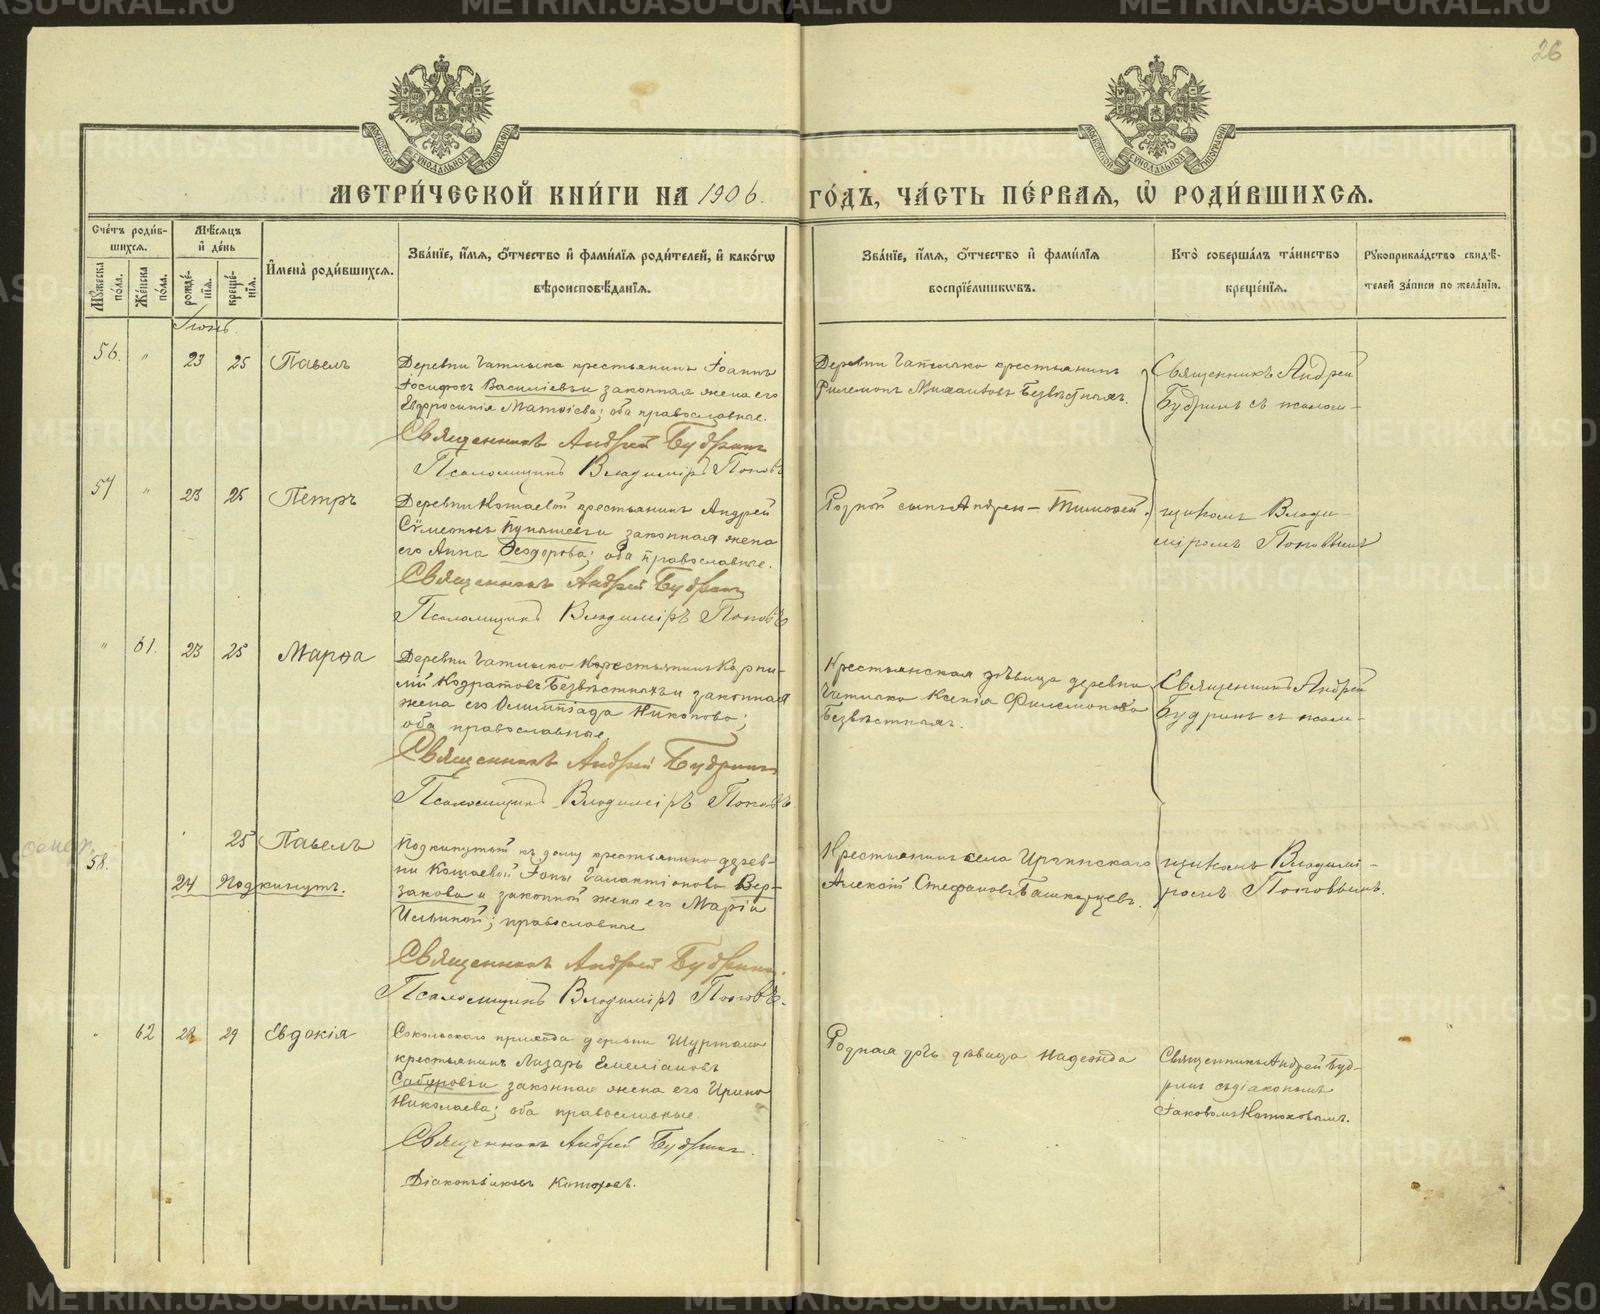 METRIKI.GASO-URAL.RU
26
МОСКОВСКОЙ СѴНОДАЛЬНОЙ ТИПОГРАФІИ
МЕТРИ́ЧЕСКОЙ КНИ́ГИ НА 1906. ГО́ДЪ, ЧА́СТЬ ПЕ́РВАЯ, Ѡ҆ РОДИ́ВШИХСЯ.
Сче́тъ роди́в-
шихся.
Мѣ́сяцъ
и҆ де́нь
И҆мена̀ роди́вшихся.
Зва́нїе, и҆́мя, ѻ҆́тчество и҆ фами́лїя роди́телей, и҆ како́гѡ
вѣроисповѣ́данїя.
Зва́нїе, и҆́мя, ѻ҆́тчество и҆ фами́лїя
воспрїе́мникѡвъ.
Кто̀ соверша́лъ та́инство
креще́нїя.
Рꙋкоприкла́дство свидѣ́-
телей за́писи по жела́нїю.
Мꙋ́жеска
по́ла.
Же́нска
по́ла.
рожде́-
нїя.
креще́-
нїя.
Іюнь.
56. " 23 25 Павелъ
Деревни Чатлыка крестьянинъ Іоаннъ
Іосифовъ Василіевъ и законная жена его
Евфросинія Матѳіева; оба православные.
Священникъ Андрей Будринъ
Псаломщикъ Владиміръ Поповъ
Деревни Чатлыка крестьянинъ
Филемонъ Михаиловъ Безвѣстныхъ.
Священникъ Андрей
Будринъ съ псалом-
57 " 23 25 Петръ
Деревни Кошаевой крестьянинъ Андрей
Сѷмеоновъ и законная жена
его Анна Ѳеодорова; оба православные.
Священникъ Андрей Будринъ
Псаломщикъ Владиміръ Поповъ
Родной сынъ Андрея – Тимоѳей.
щикомъ Влади-
міромъ Поповымъ
" 61. 23 25 Марѳа
Деревни Чатлыка крестьянинъ Корни-
лій Кодратовъ Безвѣстныхъ и законная
жена его Олимпіада Никонова;
оба православные.
Священникъ Андрей Будринъ
Псаломщикъ Владиміръ Поповъ
Крестьянская дѣвица деревни
Чатлыка Ксенія Филемонова
Безвѣстныхъ.
Священникъ Андрей
Будринъ съ псалом-
58. 25 Павелъ
24 подкинутъ.
Подкинутый къ дому крестьянина дерев-
ни Кошаевой Іоны Галактіонова Вер-
закова и законной жены его Маріи
Ильиной; православные
Священникъ Андрей Будринъ.
Псаломщикъ Владиміръ Поповъ.
Крестьянинъ села Иргинскаго
Алексій Стефановъ Башкирцевъ.
щикомъ Владимі-
ромъ Поповымъ.
" 62 28 29 Евдокія
Сокольскаго прихода деревни Шуртана
крестьянинъ Лазарь Емеліановъ
Сабуровъ и законная жена его Ирина
Николаева; оба православные.
Священникъ Андрей Будринъ.
Діаконъ Іаковъ Котоховъ.
Родная дочь дѣвица Надежда
Священникъ Андрей Буд-
ринъ съ діакономъ
Іаковомъ Котоховымъ.